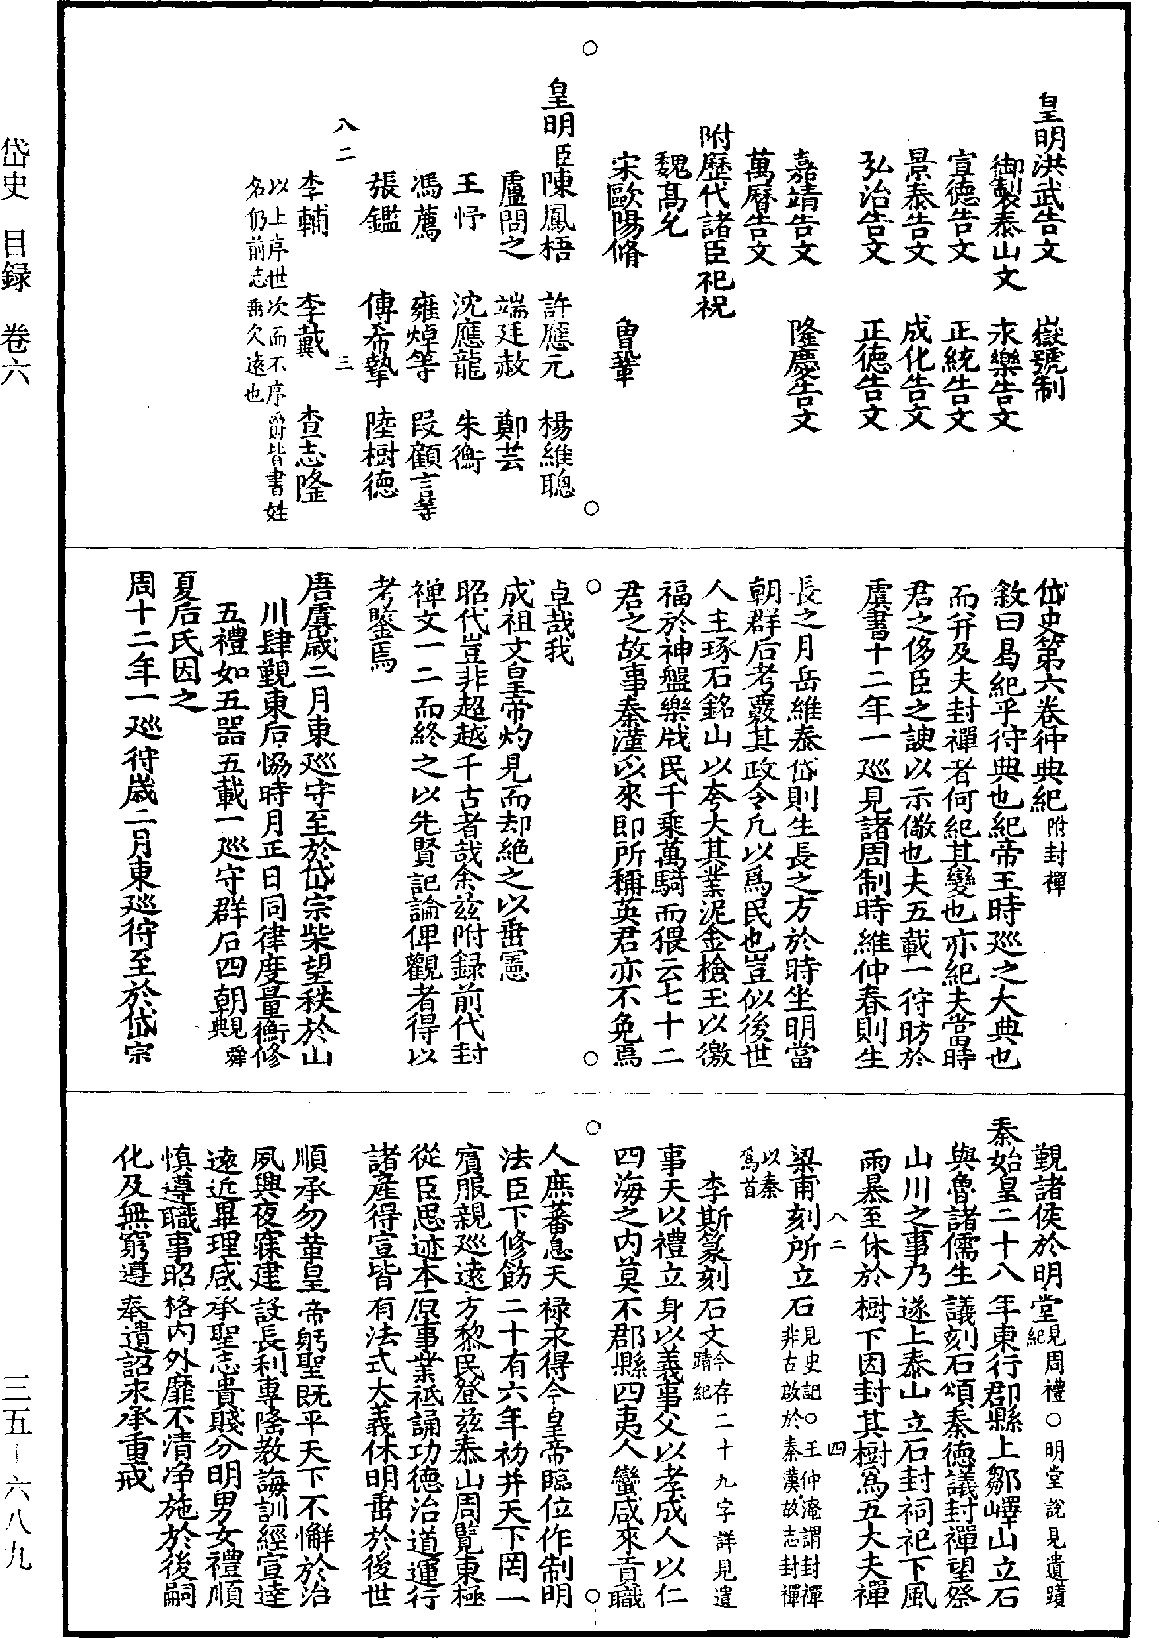 岱史 目録 卷六
三五-六八九
皇明洪武告文 嶽號制
御製泰山文 永樂告文
宣德告文 正統告文
景泰告文 成化告文
弘治告文 正德告文
嘉靖告文 隆慶告文
萬曆告文
附歷代諸臣祀祝
魏高允
宋歐陽脩 曾鞏
皇明臣陳鳳梧 許應元 楊維聰
盧問之 端廷赦 鄭芸
王忬 沈應龍 朱衡
馮薦 雍焯等 段顧言等
張鑑 傅希摯 陸樹德
八二 三
李輔 李戴 查志隆
以上序世次而不序爵皆書姓
名仍前志垂久遠也
岱史第六卷狩典紀附封禪
敘曰曷紀乎狩典也紀帝王時巡之大典也
而并及夫封禪者何紀其變也亦紀夫當時
君之侈臣之諛以示儆也夫五載一狩昉於
虞書十二年一巡見諸周制時維仲春則生
長之月岳維泰岱則生長之方於時坐明當
朝群后考覈其政令凡以爲民也豈似後世
人主琢石銘山以夸大其業泥金檢玉以徼
福於神盤樂戕民千乘萬騎而猥云七十二
君之故事秦漢以來即所稱英君亦不免焉
卓哉我
成祖文皇帝灼見而却絶之以垂憲
昭代豈非超越千古者哉余兹附録前代封
禪文一二而終之以先賢記論俾觀者得以
考鑒焉
唐虞歳二月東巡守至於岱宗柴望秩於山
川肆覲東后恊時月正日同律度量衡修
五禮如五器五載一巡守群后四朝見舜典
夏后氏因之
周十二年一巡狩歳二月東巡狩至於岱宗
覲諸侯於明堂見周禮○明堂說見遺蹟紀
秦始皇二十八年東行郡縣上鄒嶧山立石
與魯諸儒生議刻石頌秦德議封禪望祭
山川之事乃遂上泰山立石封祠祀下風
雨暴至休於樹下因封其樹爲五大夫禪
八二 四
梁甫刻所立石見史記○王仲淹謂封禪非古故於秦漢故志封禪
以秦爲首
李斯篆刻石文今存二十九字詳見遺蹟紀
事天以禮立身以義事父以孝成人以仁
四海之内莫不郡縣四夷八蠻咸來貢職
人庶蕃息天禄永得今皇帝臨位作制明
法臣下修飭二十有六年初并天下罔一
賓服親巡遠方黎民登兹泰山周覽東極
從臣思迹本原事業祗誦功德治道運行
諸産得宣皆有法式大義休明垂於後世
順承勿革皇帝躬聖既平天下不懈於治
夙興夜寐建設長利專隆教誨訓經宣達
遠近畢理咸承聖志貴賤分明男女禮順
慎遵職事昭格内外靡不清净施於後嗣
化及無窮遵奉遺詔永承重戒